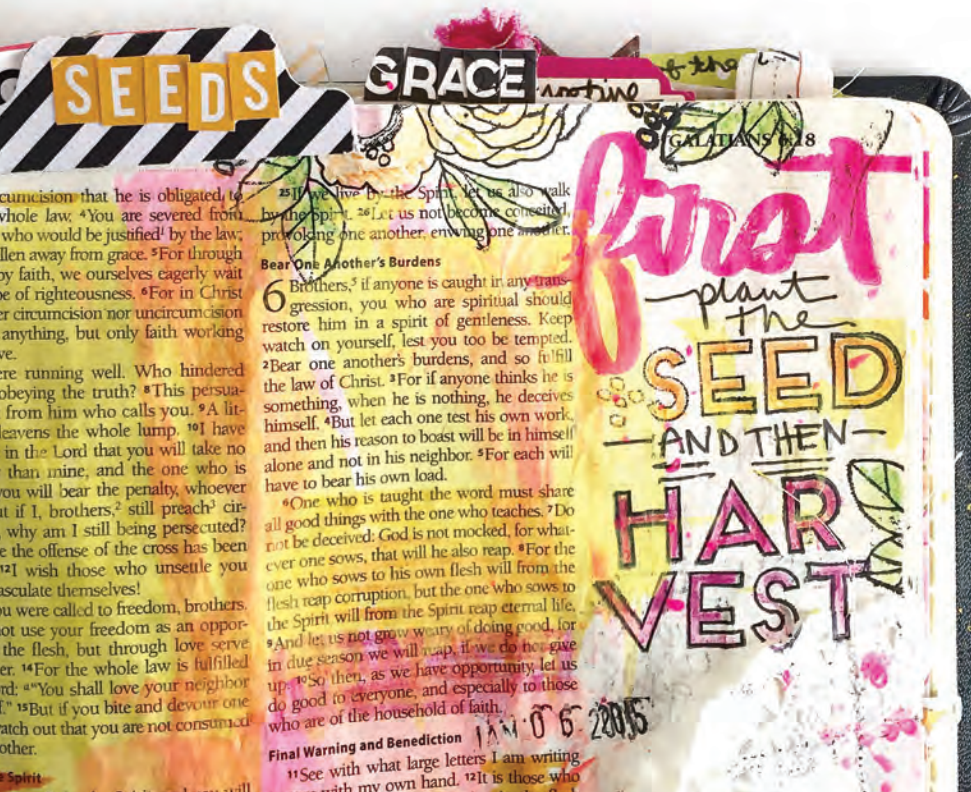 SEEDS
GRACE
of the
GALATIANS 6:18
first
plant
the
SEED
AND THEN
HAR
VEST
cumcision that he is obligated to
whole law. ⁴You are severed from
who would be justified¹ by the law;
llen away from grace. ⁵For through
by faith, we ourselves eagerly wait
pe of righteousness. ⁶For in Christ
er circumcision nor uncircumcision
anything, but only faith working
ve.
ere running well. Who hindered
obeying the truth? ⁸This persua-
from him who calls you. ⁹A lit-
leavens the whole lump. ¹⁰I have
in the Lord that you will take no
than mine, and the one who is
you will bear the penalty, whoever
ut if I, brothers,² still preach³ cir-
why am I still being persecuted?
e the offense of the cross has been
¹²I wish those who unsettle you
asculate themselves!
ou were called to freedom, brothers.
not use your freedom as an oppor-
the flesh, but through love serve
er. ¹⁴For the whole law is fulfilled
rd: ᵃ“You shall love your neighbor
f.” ¹⁵But if you bite and devour one
atch out that you are not consumed
other.
e Spirit
²⁵If we live by the Spirit, let us also walk
by the Spirit. ²⁶Let us not become conceited,
provoking one another, envying one another.
Bear One Another's Burdens
6 Brothers,⁵ if anyone is caught in any trans-
gression, you who are spiritual should
restore him in a spirit of gentleness. Keep
watch on yourself, lest you too be tempted.
²Bear one another's burdens, and so fulfill
the law of Christ. ³For if anyone thinks he is
something, when he is nothing, he deceives
himself. ⁴But let each one test his own work,
and then his reason to boast will be in himself
alone and not in his neighbor. ⁵For each will
have to bear his own load.
⁶One who is taught the word must share
all good things with the one who teaches. ⁷Do
not be deceived: God is not mocked, for what-
ever one sows, that will he also reap. ⁸For the
one who sows to his own flesh will from the
flesh reap corruption, but the one who sows to
the Spirit will from the Spirit reap eternal life.
⁹And let us not grow weary of doing good, for
in due season we will reap, if we do not give
up. ¹⁰So then, as we have opportunity, let us
do good to everyone, and especially to those
who are of the household of faith.
JAN 06 2015
Final Warning and Benediction
¹¹See with what large letters I am writing
with my own hand. ¹²It is those who